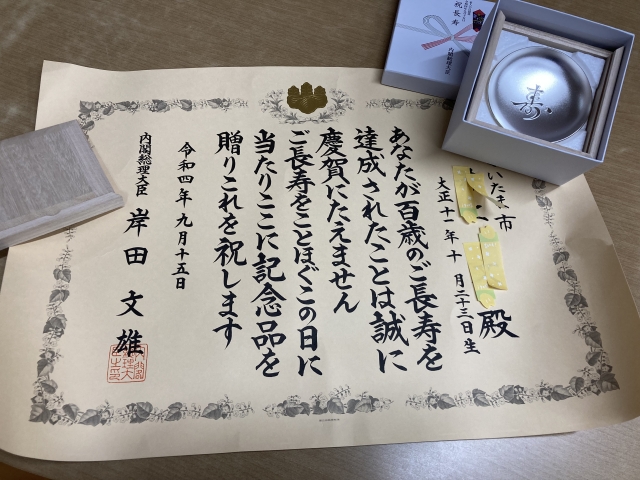 いたま市
殿
大正十一年十月二十三日生
あなたが百歳のご長寿を
達成されたことは誠に
慶賀にたえません
ご長寿をことほぐこの日に
当たりここに記念品を
贈りこれを祝します
令和四年九月十五日
内閣総理大臣 岸田文雄
祝長寿
内閣総理大臣
寿